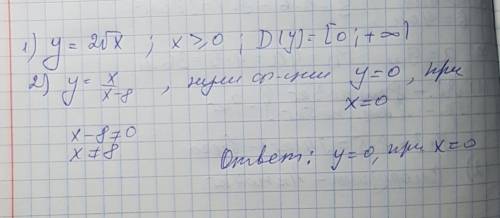 1) y = 2√x ; x ≥ 0 ; D(y) = [0; +∞)
2) y = x/(x-8) , нули ф-ции y=0, при x=0
x-8≠0
x≠8
Ответ: y=0, при x=0